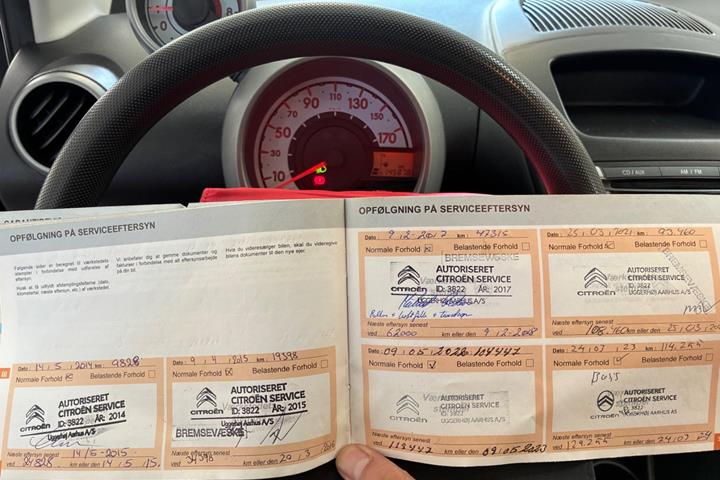 10
30
50
70
90
110
130
150
170
CD / AUX
AM / FM
OPFØLGNING PÅ SERVICEEFTERSYN
Følgende sider er beregnet til værkstedets
stempler i forbindelse med udførelse
af eftersyn.
Husk at få udfyldt afstemplingsfelterne (dato,
kilometertal, næste eftersyn, etc.) af værkstedet.
Vi anbefaler dig at gemme dokumenter og
fakturaer i forbindelse med alt eftersynsarbejde
på din bil.
Hvis du videresælger bilen, skal du videregive
bilens dokumenter til den nye ejer.
Dato: 14/5/2014 km: 9828
Normale Forhold Belastende Forhold
CITROËN
AUTORISERET
CITROËN SERVICE
ID: 3822 ÅR: 2014
Uggerhøj Aarhus A/S
Næste eftersyn senest 14/5-2015.
ved 24828 km eller den 14/5/15.
Dato: 9/4/2015 km: 19398
Normale Forhold Belastende Forhold
CITROËN
AUTORISERET
CITROËN SERVICE
ID: 3822 ÅR: 2015
Uggerhøj Aarhus A/S
BREMSEVÆSKE
Næste eftersyn senest
ved 34398 km eller den 20/3/2016
OPFØLGNING PÅ SERVICEEFTERSYN
Dato: 9/12/2017 km: 47315
Normale Forhold Belastende Forhold
BREMSEVÆSKE
CITROËN
AUTORISERET
CITROËN SERVICE
ID: 3822 ÅR: 2017
UGGERHØJ AARHUS A/S
Næste eftersyn senest
ved 62000 km eller den 9/12-2018
Dato: 25/03/2021 km: 93.460
Normale Forhold Belastende Forhold
BREMSEVÆSKE
CITROËN
CITROËN SERVICE
ID: 3822
UGGERHØJ AARHUS A/S
Næste eftersyn senest
ved 108.460 km eller den
Dato: 09/05/2022 km: 104447
Normale Forhold Belastende Forhold
CITROËN
CITROËN SERVICE
Næste eftersyn senest
ved 119447 km eller den 09/05/2023
Dato: 24/03/23 km: 114.255
Normale Forhold Belastende Forhold
AUTORISERET
CITROËN SERVICE
ID: 3822
UGGERHØJ AARHUS AS
CITROËN
Næste eftersyn senest
ved 129.255 km eller den 24/03/24